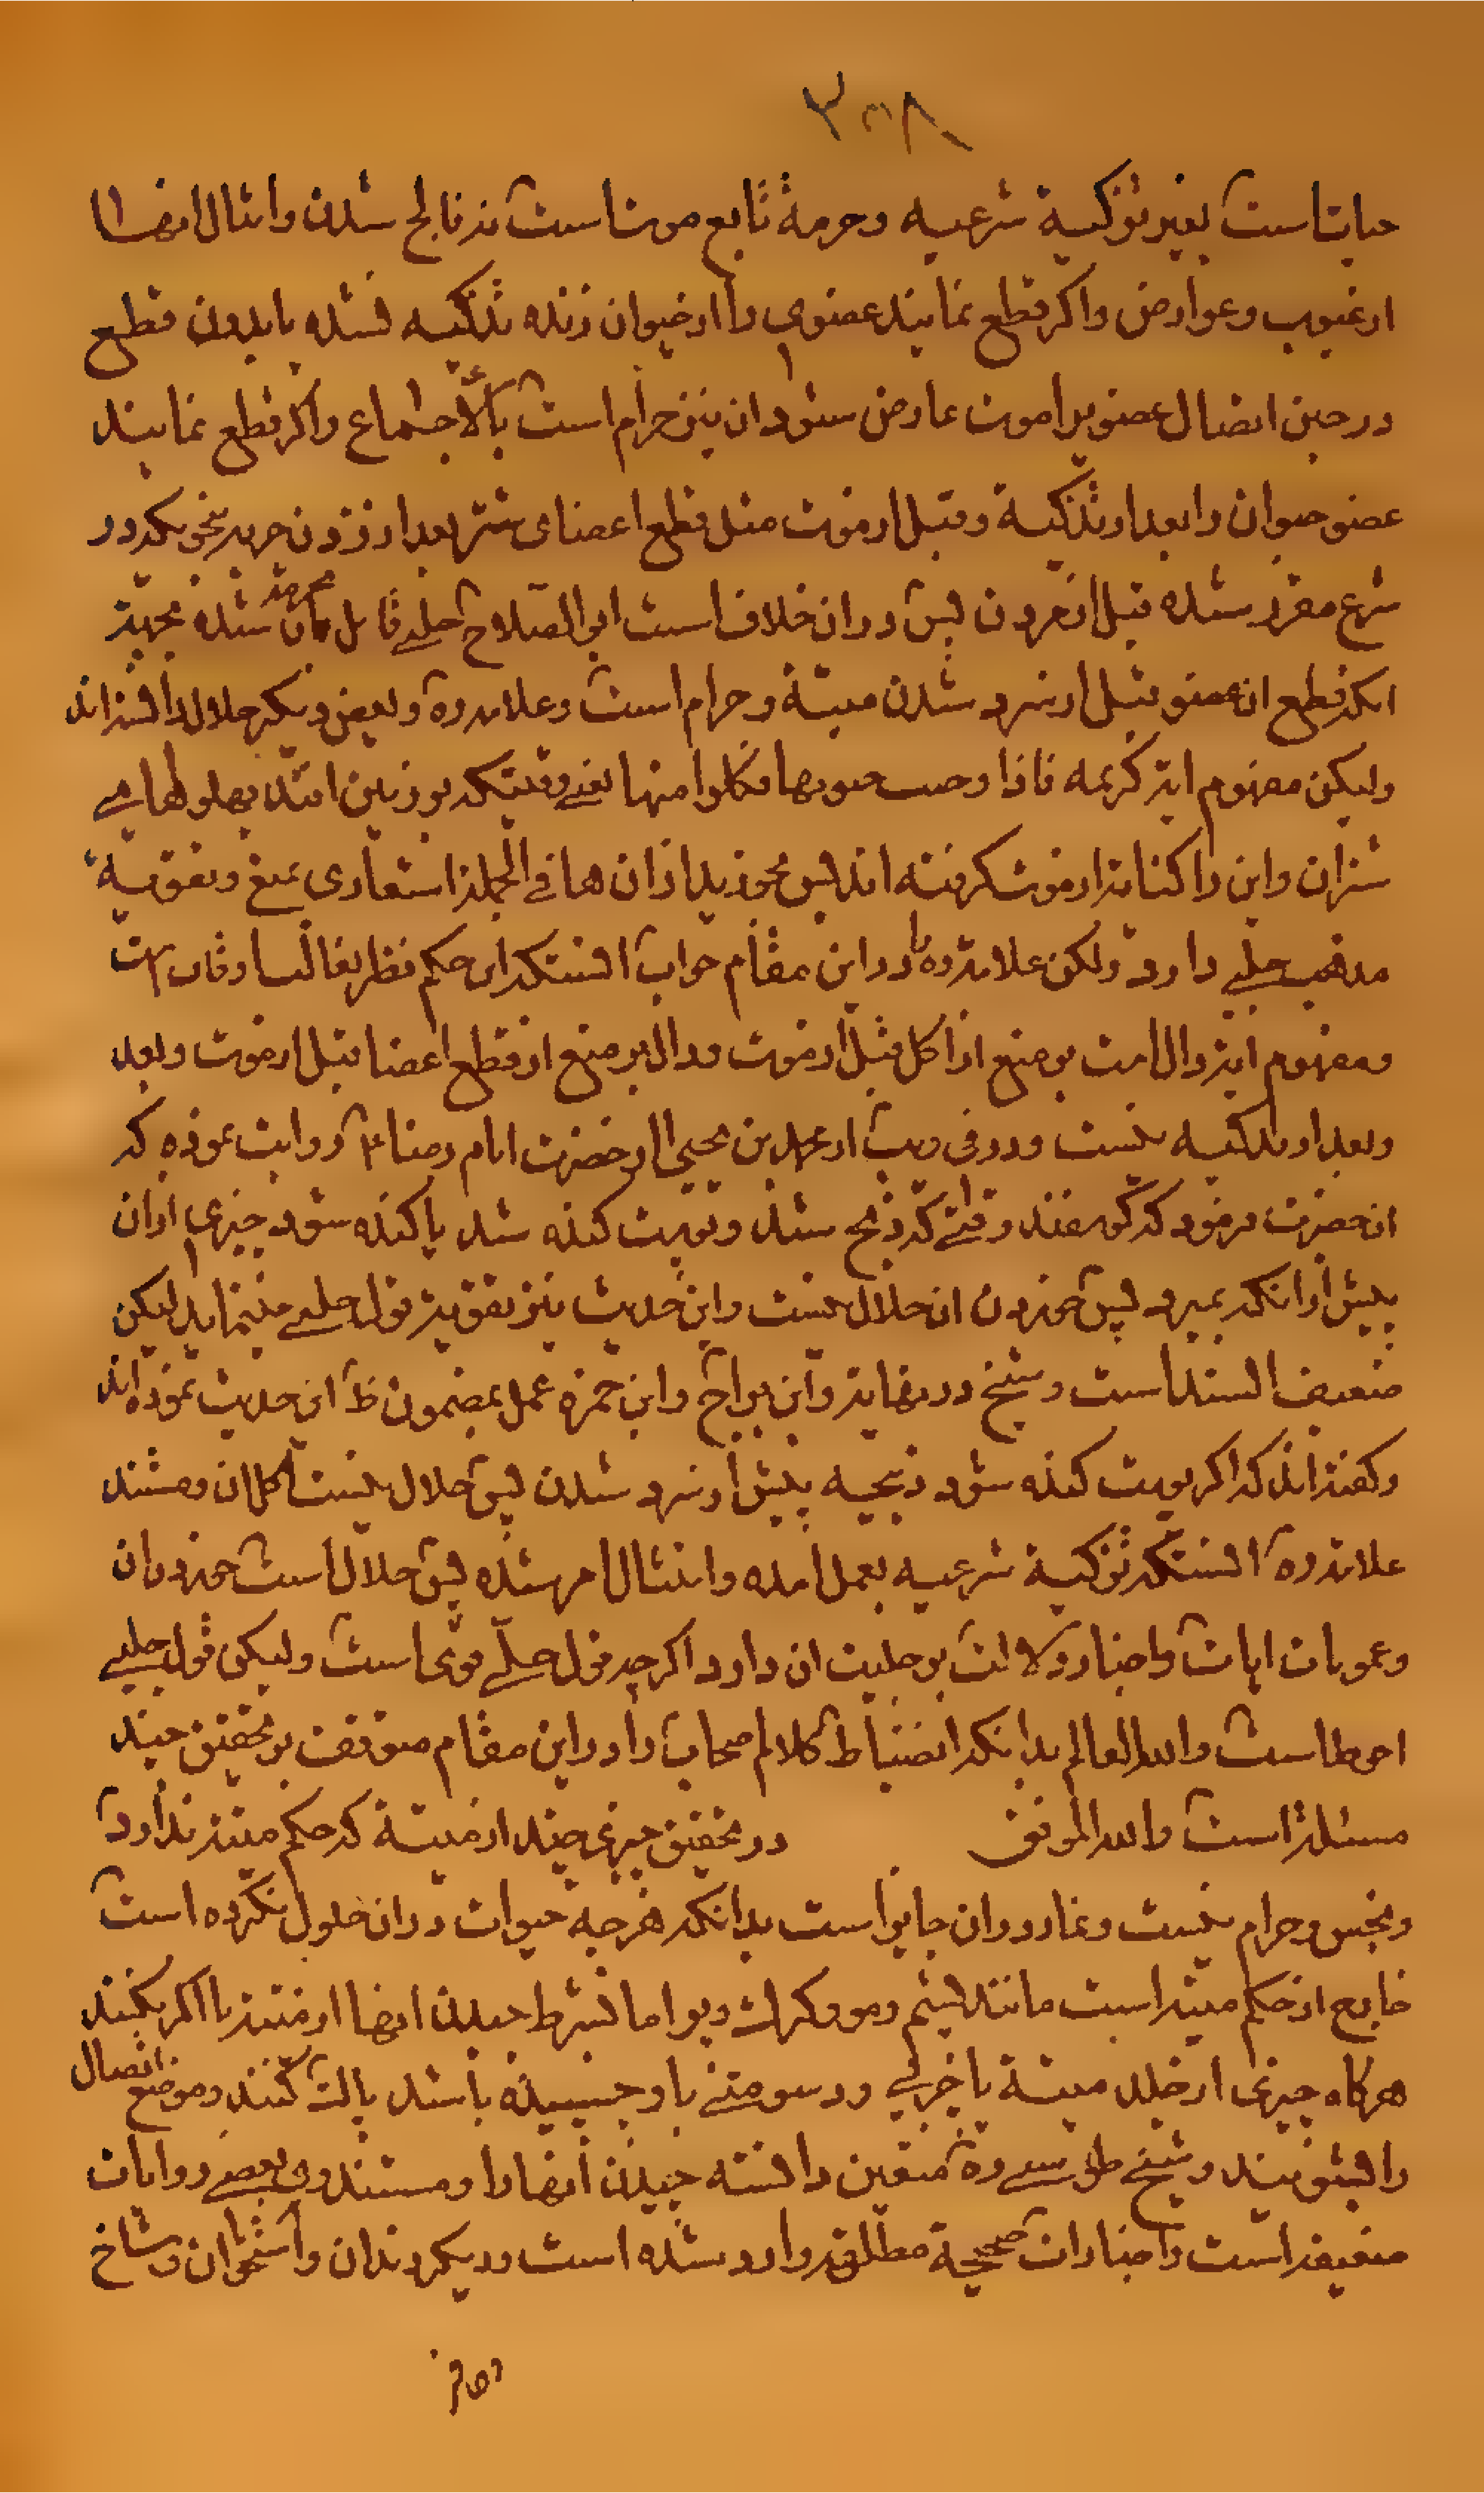 ۳۰۸
حیاتست بغیر تذکیة شرعیه وحرمة تابع موتست نه فالج شدن وامثال انها
از عیوب وعوارض واکر قطع نمایند عضوی را از حیوان زنده تذکیه نشده یا بدون قطع
در حین اتصال عضویرا موت عارض شود ان نیز حرام است بالأجتماع واکر قطع نمایند
عضو حیوان را بعد از تذکیة وقبل از موت مثل قطع اعضای شتر بعد از زدن حربه بنحویکه در
شرع مقرر شده قبل از مردن پس در ان خلافست ابو الصلاح حلبی قایل بان شده بجهة
انکه قطع ان عضو قبل از سرد شدن میتة وحرام است وعلامه ره وبعض دیکر حلال دانسته اند
ولیکن مفهوم ایه کریمه فاذا وجبت جنوبها فکلوا منها یعنی وقتیکه بر زمین افتد پهلوهای
شتران واین را کنایه از موت کرفته اند پس بخورید از ان ها فی الجمله اشعاری بمنع وتقویة
مذهب حلبی دارد ولکن علامه ره را در این مقام جواب انستکه این حکم نظر بغالب اوقات است
ومفهوم ایه دال است بر منع از اکل قبل از موت ودال بر منع از قطع اعضا قبل از موت وبعد
وبعد از تذکیه نیست ودر فی ویب از محمد بن یحیی از حضرت امام رضا ع روایت نموده که
انحضرت فرمود که کوسفند وقتی که ذبح شد وپوست کنده شد یا کنده شود چیزی از ان
پیش از انکه بمیرد پس خوردن ان حلال نیست واین حدیث نیز تقویة قول حلبی مینماید لیکن
ضعیف السند است وشیخ در نهایه وابن براج وابن حمزه عمل بمضمون ظ این حدیث نموده اند
وکفته اند که اکر پوست کنده شود ذبیحه پیش از سرد شدن پس حلال نیست اکل ان ومستند
علامه ره انستکه تذکیة شرعیه بعمل امده وامتثال امر شده پس حلال است خوردن ان
وعمومات ایات واخبار دلالت بر حلیت ان دارد اکرچه قول حلی قوی است ولیکن قول حلبی
احوط است والله العالم بدانکه انضباط کلام اصحاب را در این مقام موقف بر تحقیق چند
مسئله است والله الموفق در تحقیق چیزی چند از میتة که حکم میته ندارد
ونجس وحرام نیست ونماز در ان جایز است بدانکه هرچه حیوات در ان حلول نکرده است
خارج از حکم میته است مانند پشم ومو وکرک وپر اما بشرط چیدن انها از میته یا اکر بکنند
هرکاه چیزی از جلد میتة یا جزئی ورسومتی باو چسبیده باشد پاک کنند وموضع اتصال
را بشویند وشیخ طوسی ره متعین دانسته چیدن انها را ومستند وی بعضی روایات
ضعیفه است واخبارات صحیحة مطلقه وارد شده است ودیکر دندان واستخوان وشاخ